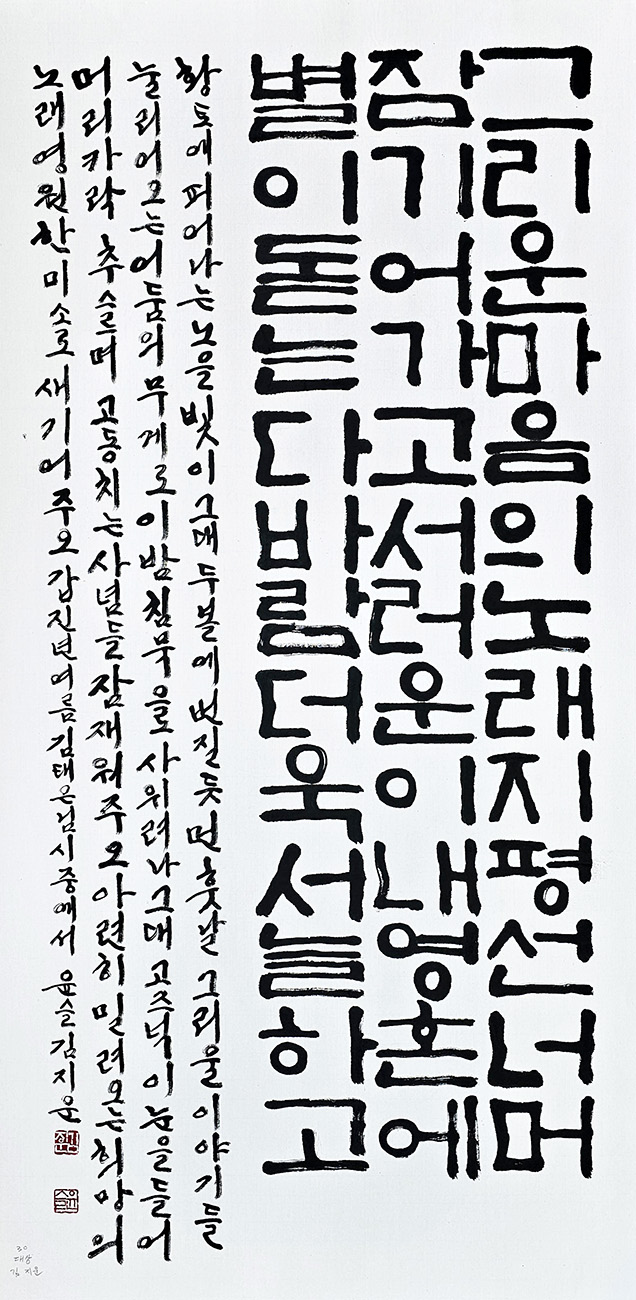 그리운마음의노래지평선너머
잠기어가고서러운이내영혼에
별이돋는다바람더욱서늘하고
황토에피어나는노을빛이그대두볼에번질듯먼훗날그리울이야기들
눌리어오는어둠의무게로이밤침묵으로사위려나그대고즈넉이눈을들어
머리카락추슬며고동치는사념들잠재워주오아련히밀려오는희망의
노래영원한미소로새기어주오갑진년여름김태은님시중에서 윤슬김지윤
30
대상
김지윤